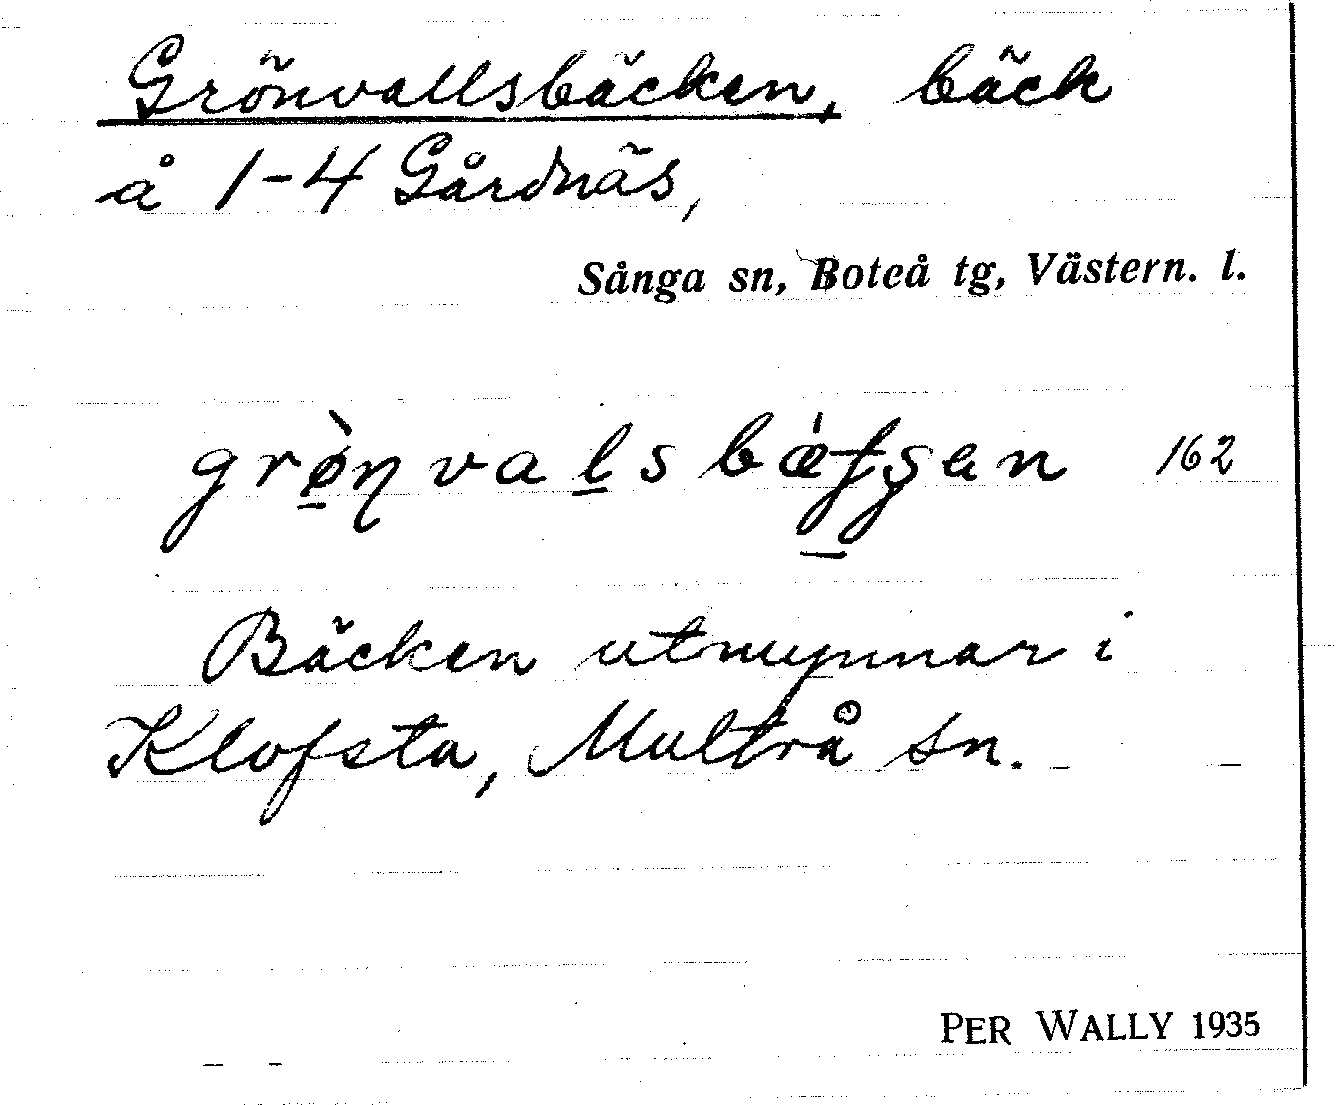 Grönvallsbäcken, bäck
å 1-4 Gårdnäs,
Sånga sn, Boteå tg, Västern. l.
162
Bäcken utmynnar i
Klofsta, Multrå sn.
PER WALLY 1935